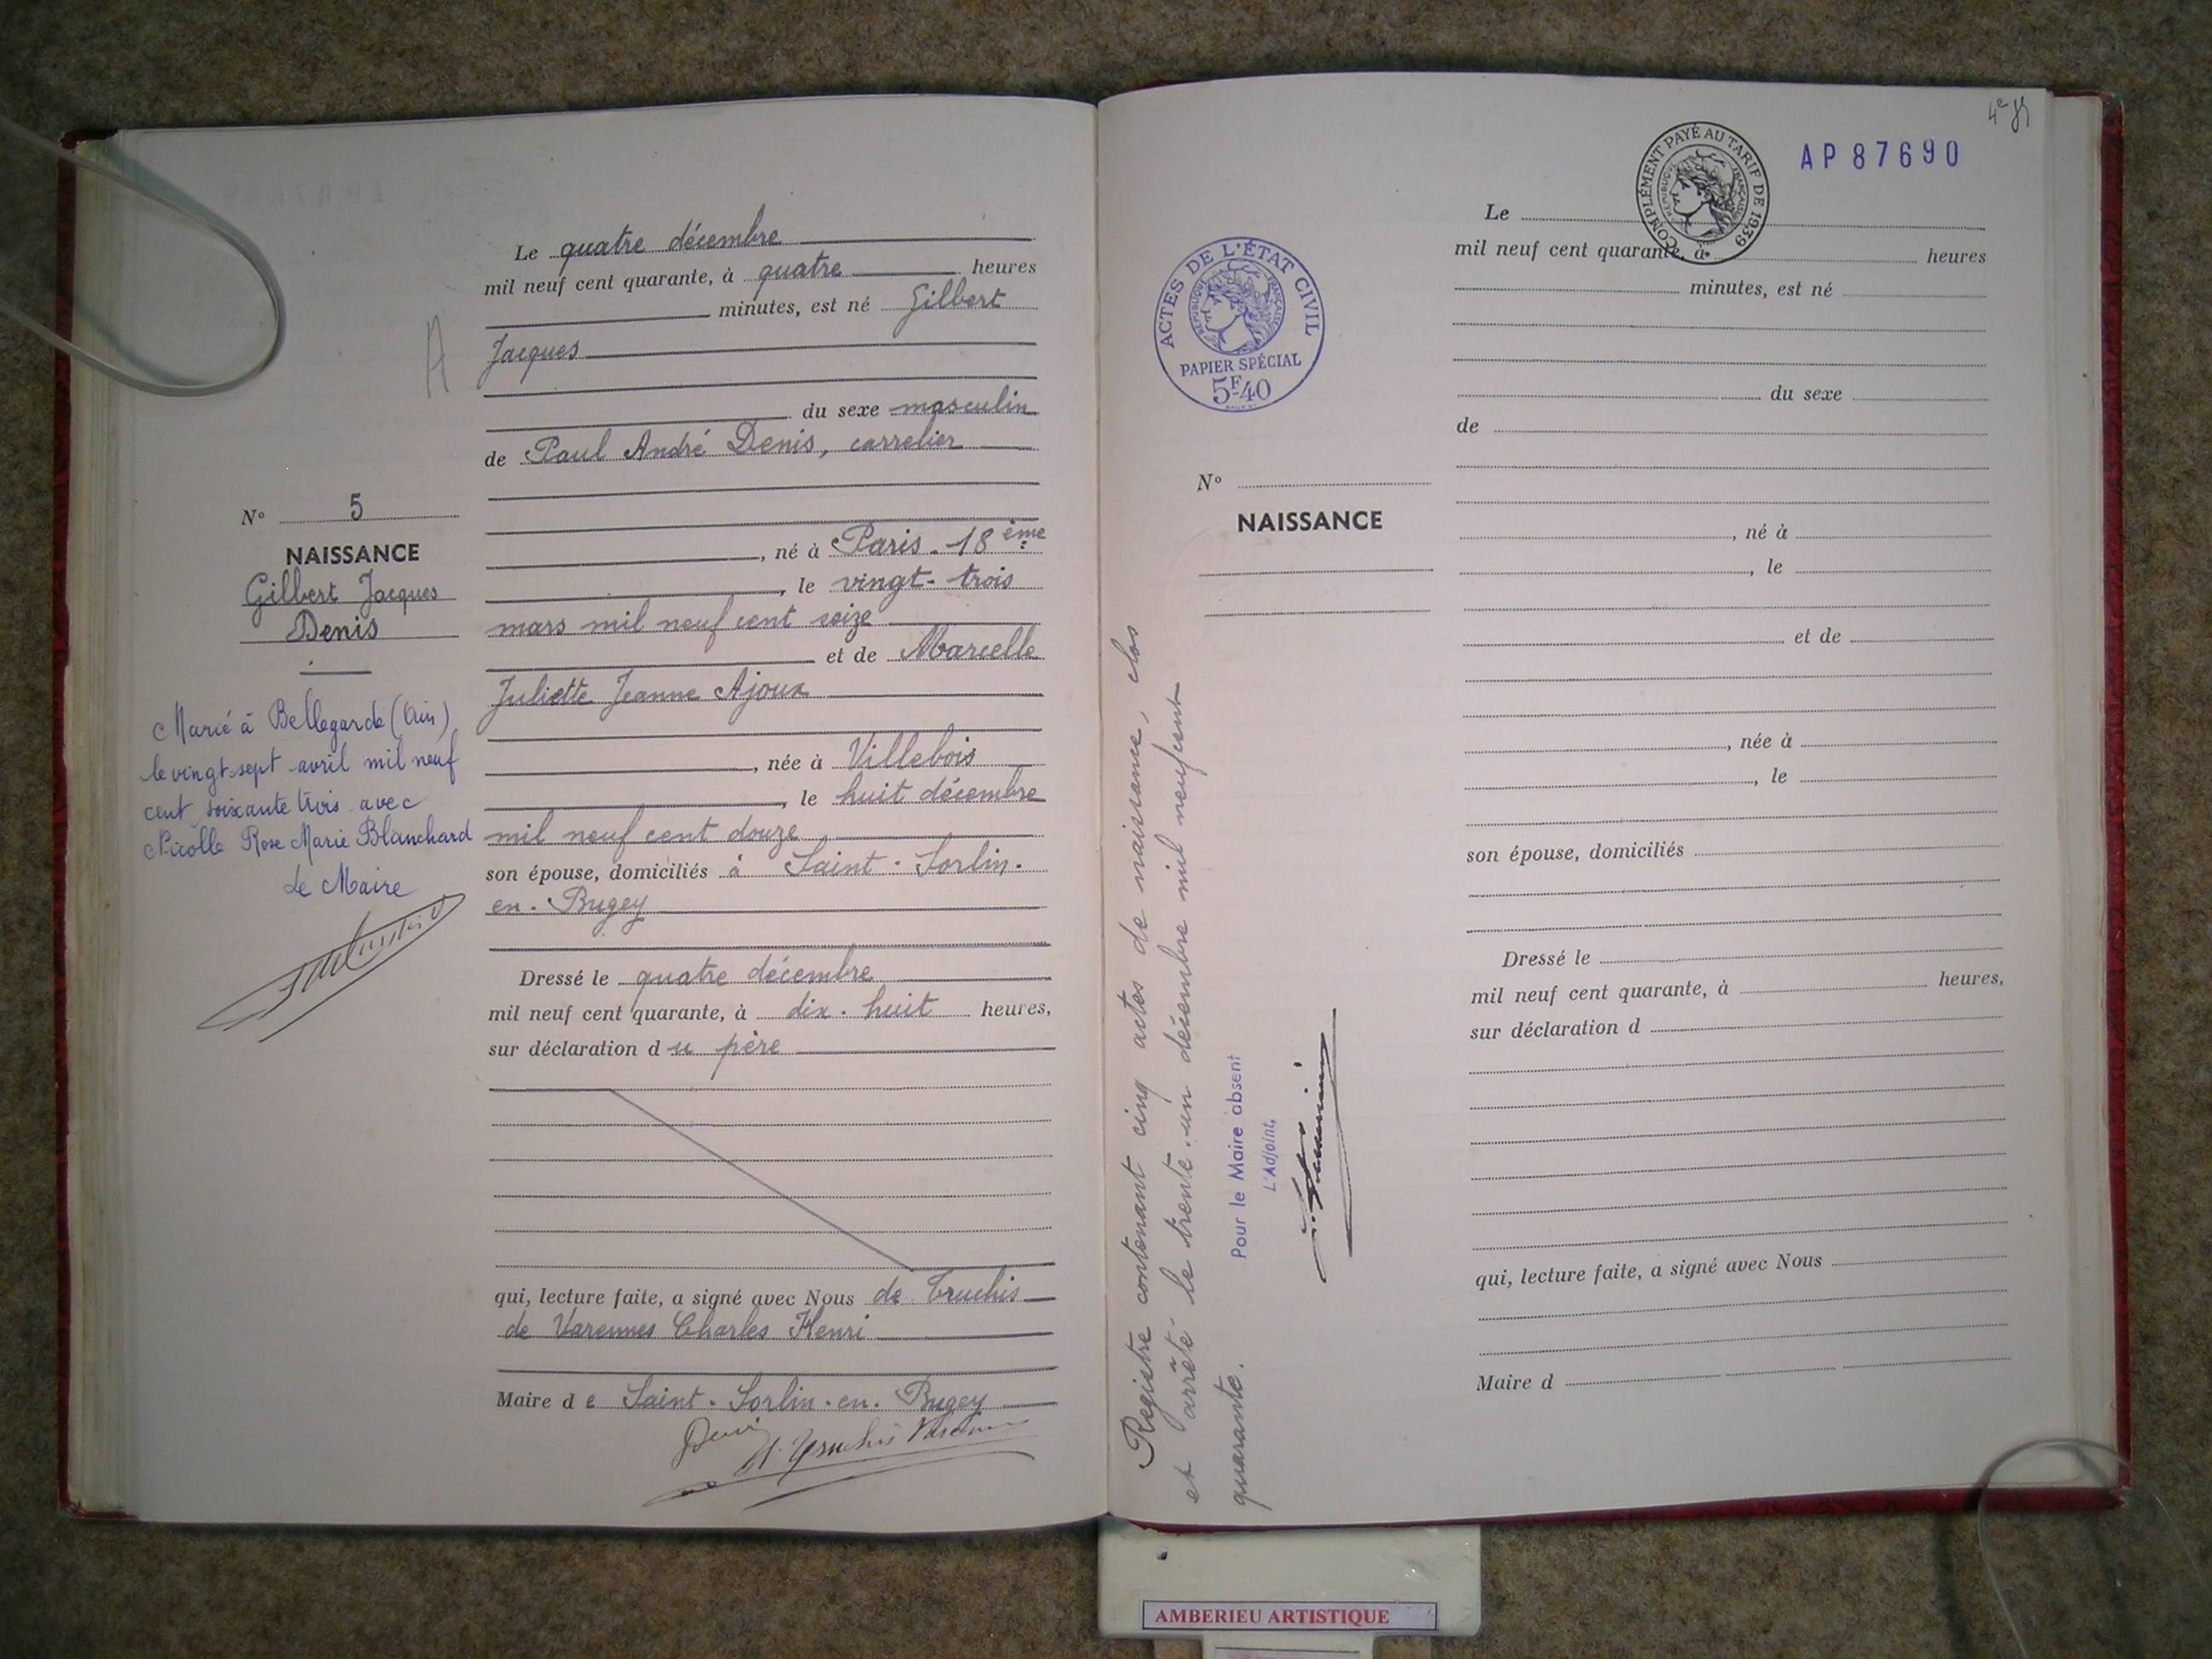 Le quatre décembre
mil neuf cent quarante, à quatre heures
minutes, est né Gilbert
Jacques
A
du sexe masculin
de Paul André Denis, carrelier
, né à Paris. 18ème
, le vingt-trois
mars mil neuf cent seize
et de Marcelle
Juliette Jeanne Ajoux
, née à Villebois
, le huit décembre
mil neuf cent douze
son épouse, domiciliés à Saint-Sorlin-
en-Bugey
Dressé le quatre décembre
mil neuf cent quarante, à dix-huit heures,
sur déclaration du père
qui, lecture faite, a signé avec Nous de Truchis
de Varennes Charles Henri
Maire de Saint-Sorlin-en-Bugey
Denis
Nº 5
NAISSANCE
Gilbert Jacques
Denis
Marié à Bellegarde (Ain)
le vingt-sept avril mil neuf
cent soixante trois avec
Nicolle Rose Marie Blanchard
Le Maire
ACTES DE L'ÉTAT CIVIL
RÉPUBLIQUE FRANÇAISE
PAPIER SPÉCIAL
5F40
Nº
NAISSANCE
Registre contenant cinq actes de naissance, clos
et arrêté le trente-un décembre mil neuf cent
quarante.
Pour le Maire absent
L'Adjoint,
COMPLÉMENT PAYÉ AU TARIF DE 1939
RÉPUBLIQUE FRANÇAISE
AP 87690
Le
mil neuf cent quarante, à heures
minutes, est né
du sexe
de
, né à
, le
et de
, née à
, le
son épouse, domiciliés
Dressé le
mil neuf cent quarante, à heures,
sur déclaration d
qui, lecture faite, a signé avec Nous
Maire d
AMBERIEU ARTISTIQUE